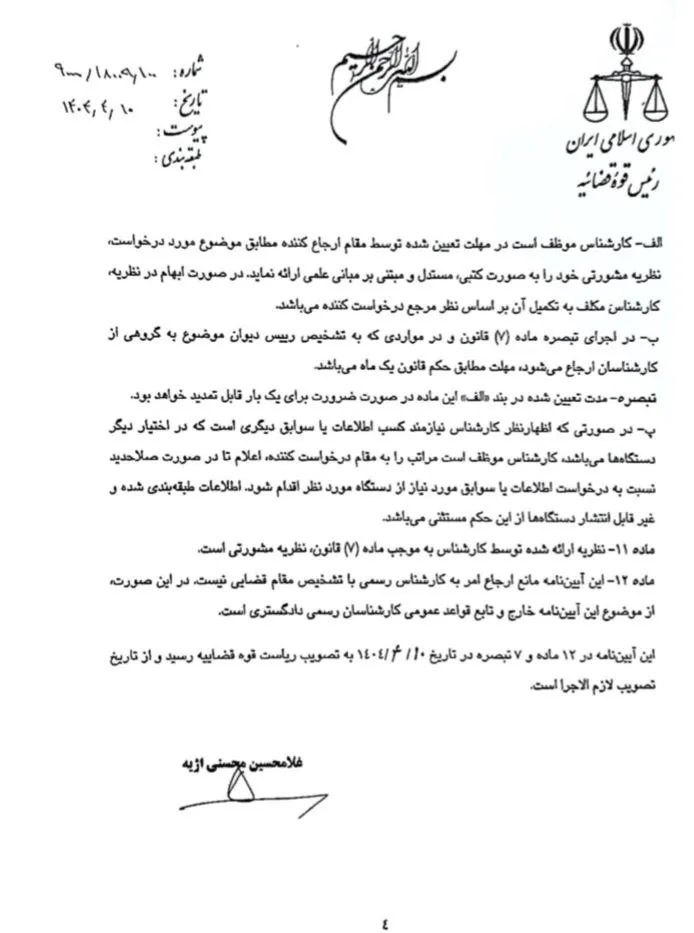 بسم الله الرحمن الرحیم
جمهوری اسلامی ایران
رئیس قوهٔ قضائیه
شماره: ۹۰۰۰/۱۸۰۰۹/۱۰۰
تاریخ: ۱۴۰۴/۴/۱۰
پیوست:
طبقه‌بندی:
الف- کارشناس موظف است در مهلت تعیین شده توسط مقام ارجاع کننده مطابق موضوع مورد درخواست،
نظریه مشورتی خود را به صورت کتبی، مستدل و مبتنی بر مبانی علمی ارائه نماید. در صورت ابهام در نظریه،
کارشناس مکلف به تکمیل آن بر اساس نظر مرجع درخواست کننده می‌باشد.
ب- در اجرای تبصره ماده (۷) قانون و در مواردی که به تشخیص رییس دیوان موضوع به گروهی از
کارشناسان ارجاع می‌شود، مهلت مطابق حکم قانون یک ماه می‌باشد.
تبصره- مدت تعیین شده در بند «الف» این ماده در صورت ضرورت برای یک بار قابل تمدید خواهد بود.
پ- در صورتی که اظهارنظر کارشناس نیازمند کسب اطلاعات یا سوابق دیگری است که در اختیار دیگر
دستگاه‌ها می‌باشد، کارشناس موظف است مراتب را به مقام درخواست کننده، اعلام تا در صورت صلاحدید
نسبت به درخواست اطلاعات یا سوابق مورد نیاز از دستگاه مورد نظر اقدام شود. اطلاعات طبقه‌بندی شده و
غیر قابل انتشار دستگاه‌ها از این حکم مستثنی می‌باشد.
ماده ۱۱- نظریه ارائه شده توسط کارشناس به موجب ماده (۷) قانون، نظریه مشورتی است.
ماده ۱۲- این آیین‌نامه مانع ارجاع امر به کارشناس رسمی با تشخیص مقام قضایی نیست. در این صورت،
از موضوع این آیین‌نامه خارج و تابع قواعد عمومی کارشناسان رسمی دادگستری است.
این آیین‌نامه در ۱۲ ماده و ۷ تبصره در تاریخ ۱۴۰۴/۴/۱۰ به تصویب ریاست قوه قضاییه رسید و از تاریخ
تصویب لازم الاجرا است.
غلامحسین محسنی اژیه
٤